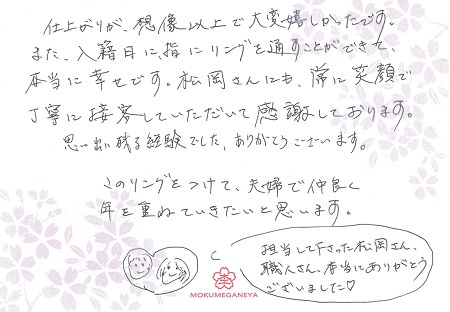 仕上がりが、想像以上で大変嬉しかったです。
また、入籍日に、指にリングを通すことができて、
本当に幸せです。松岡さんにも、常に笑顔で
丁寧に接客していただいて感謝しております。
思い出に残る経験でした、ありがとうございます。
このリングをつけて、夫婦で仲良く
年を重ねていきたいと思います。
担当して下さった松岡さん、
職人さん、本当にありがとう
ございました♡
MOKUMEGANEYA